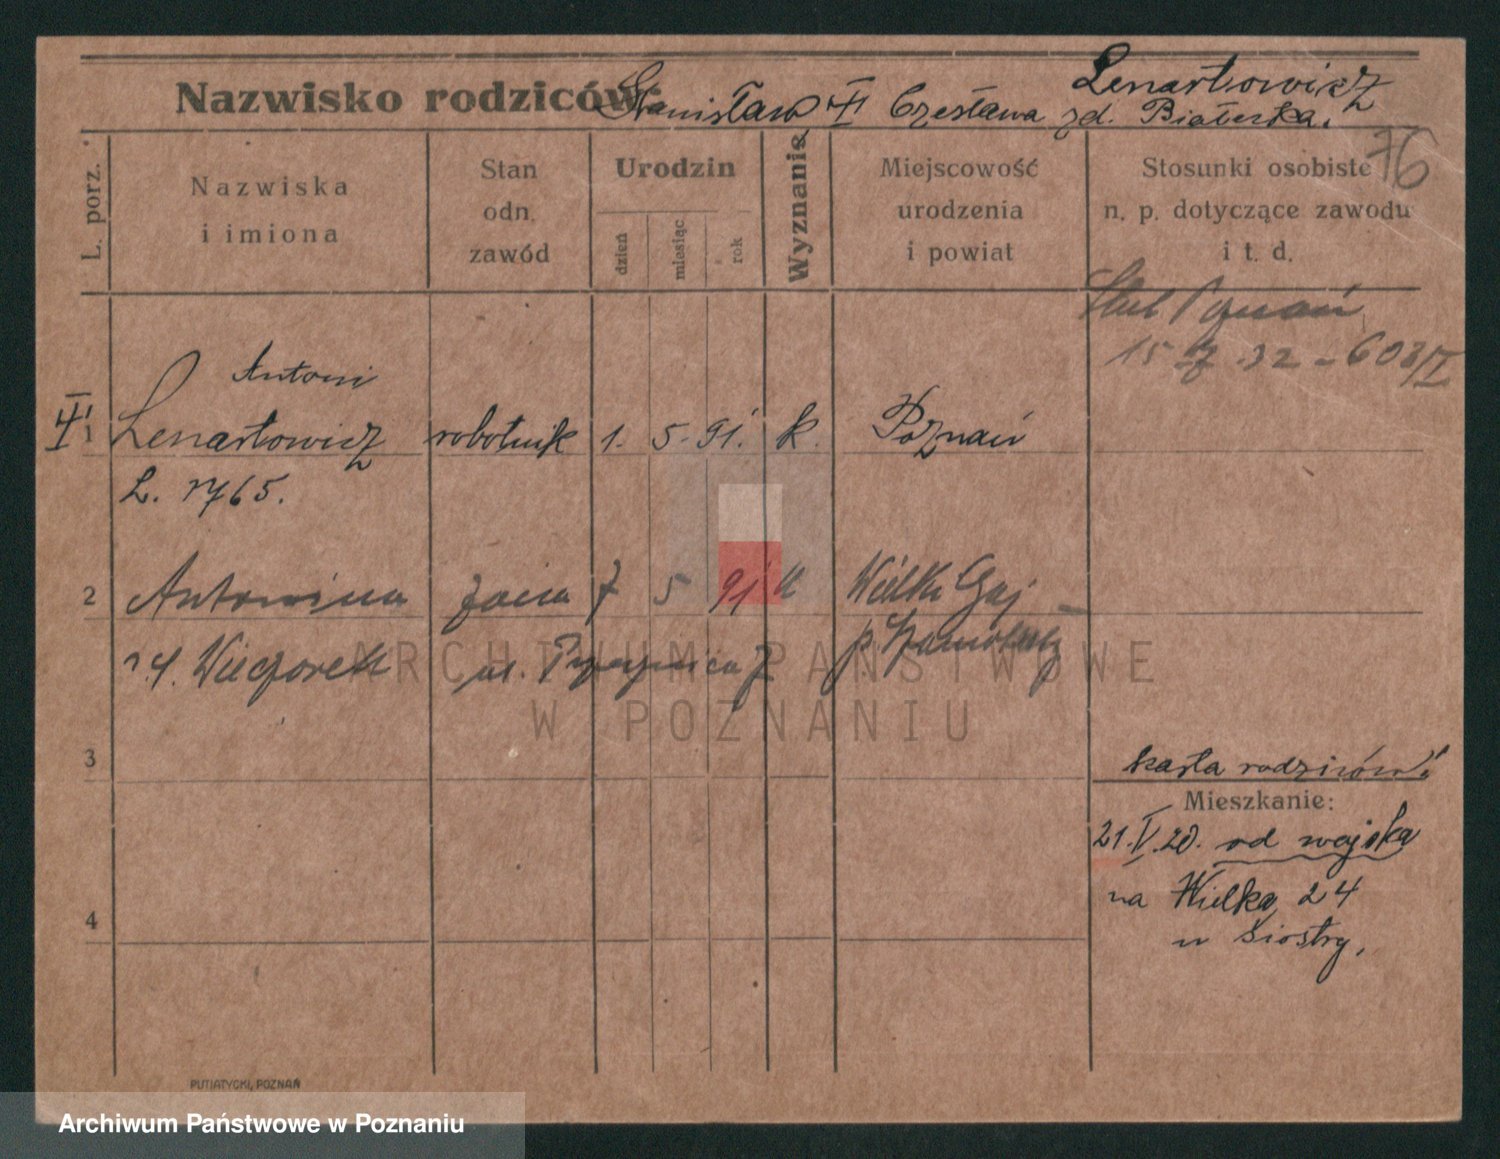 Lenartowicz
Nazwisko rodziców: Stanisław Czesława zd. Białecka.
76
L. porz.
Nazwiska
i imiona
Stan
odn.
zawód
Urodzin
dzień
miesiąc
rok
Wyznanie
Miejscowość
urodzenia
i powiat
Stosunki osobiste
n. p. dotyczące zawodu
i t. d.
Ślub Poznań
15 7. 32 - 603/I
Antoni
1 Lenartowicz robotnik 1. 5. 91. k. Poznań
L. 1765.
2 Antonina żona 7 5 91 k Wielki Gaj
Wieczorek ul. p. Szamotuły
3
karta rodziców
Mieszkanie:
21.V.20. od wojska
na Wielka 24
4
u siostry.
ARCHIWUM PAŃSTWOWE
W POZNANIU
PUTIATYCKI, POZNAŃ
Archiwum Państwowe w Poznaniu